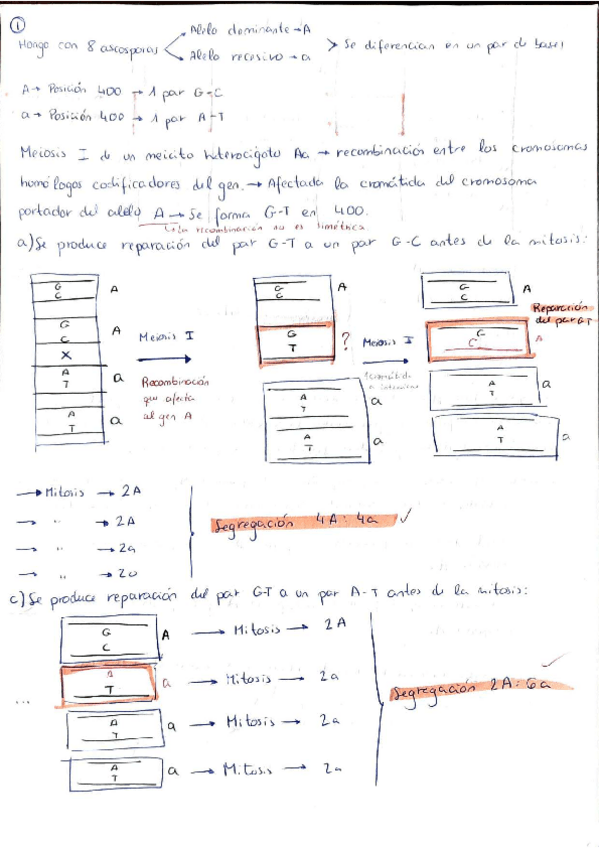 ①
Hongo con 8 ascosporas
Alelo dominante → A
Alelo recesivo → a
> Se diferencian en un par de bases
A → Posición 400 → 1 par G-C
a → Posición 400 → 1 par A-T
Meiosis I de un meicito heterocigoto Aa → recombinación entre los cromosomas
homólogos codificadores del gen. → Afectada la cromátida del cromosoma
portador del alelo A → Se forma G-T en 400.
La recombinación no es simétrica
a) Se produce reparación del par G-T a un par G-C antes de la mitosis:
G
C
A
G
C
A
X
A
T
a
A
T
a
Meiosis I
Recombinación
que afecta
al gen A
G
C
A
G
T
?
A
T
a
A
T
a
Meiosis I
G
C
A
Reparación
del par GT
G
C
A
A
T
a
A
T
a
→ Mitosis → 2A
→ " → 2A
→ " → 2a
→ " → 2a
Segregación 4A : 4a ✓
c) Se produce reparación del par G-T a un par A-T antes de la mitosis:
G
C
A → Mitosis → 2A
A
T
a → Mitosis → 2a
...
A
T
a → Mitosis → 2a
A
T
a → Mitosis → 2a
Segregación 2A : 6a ✓